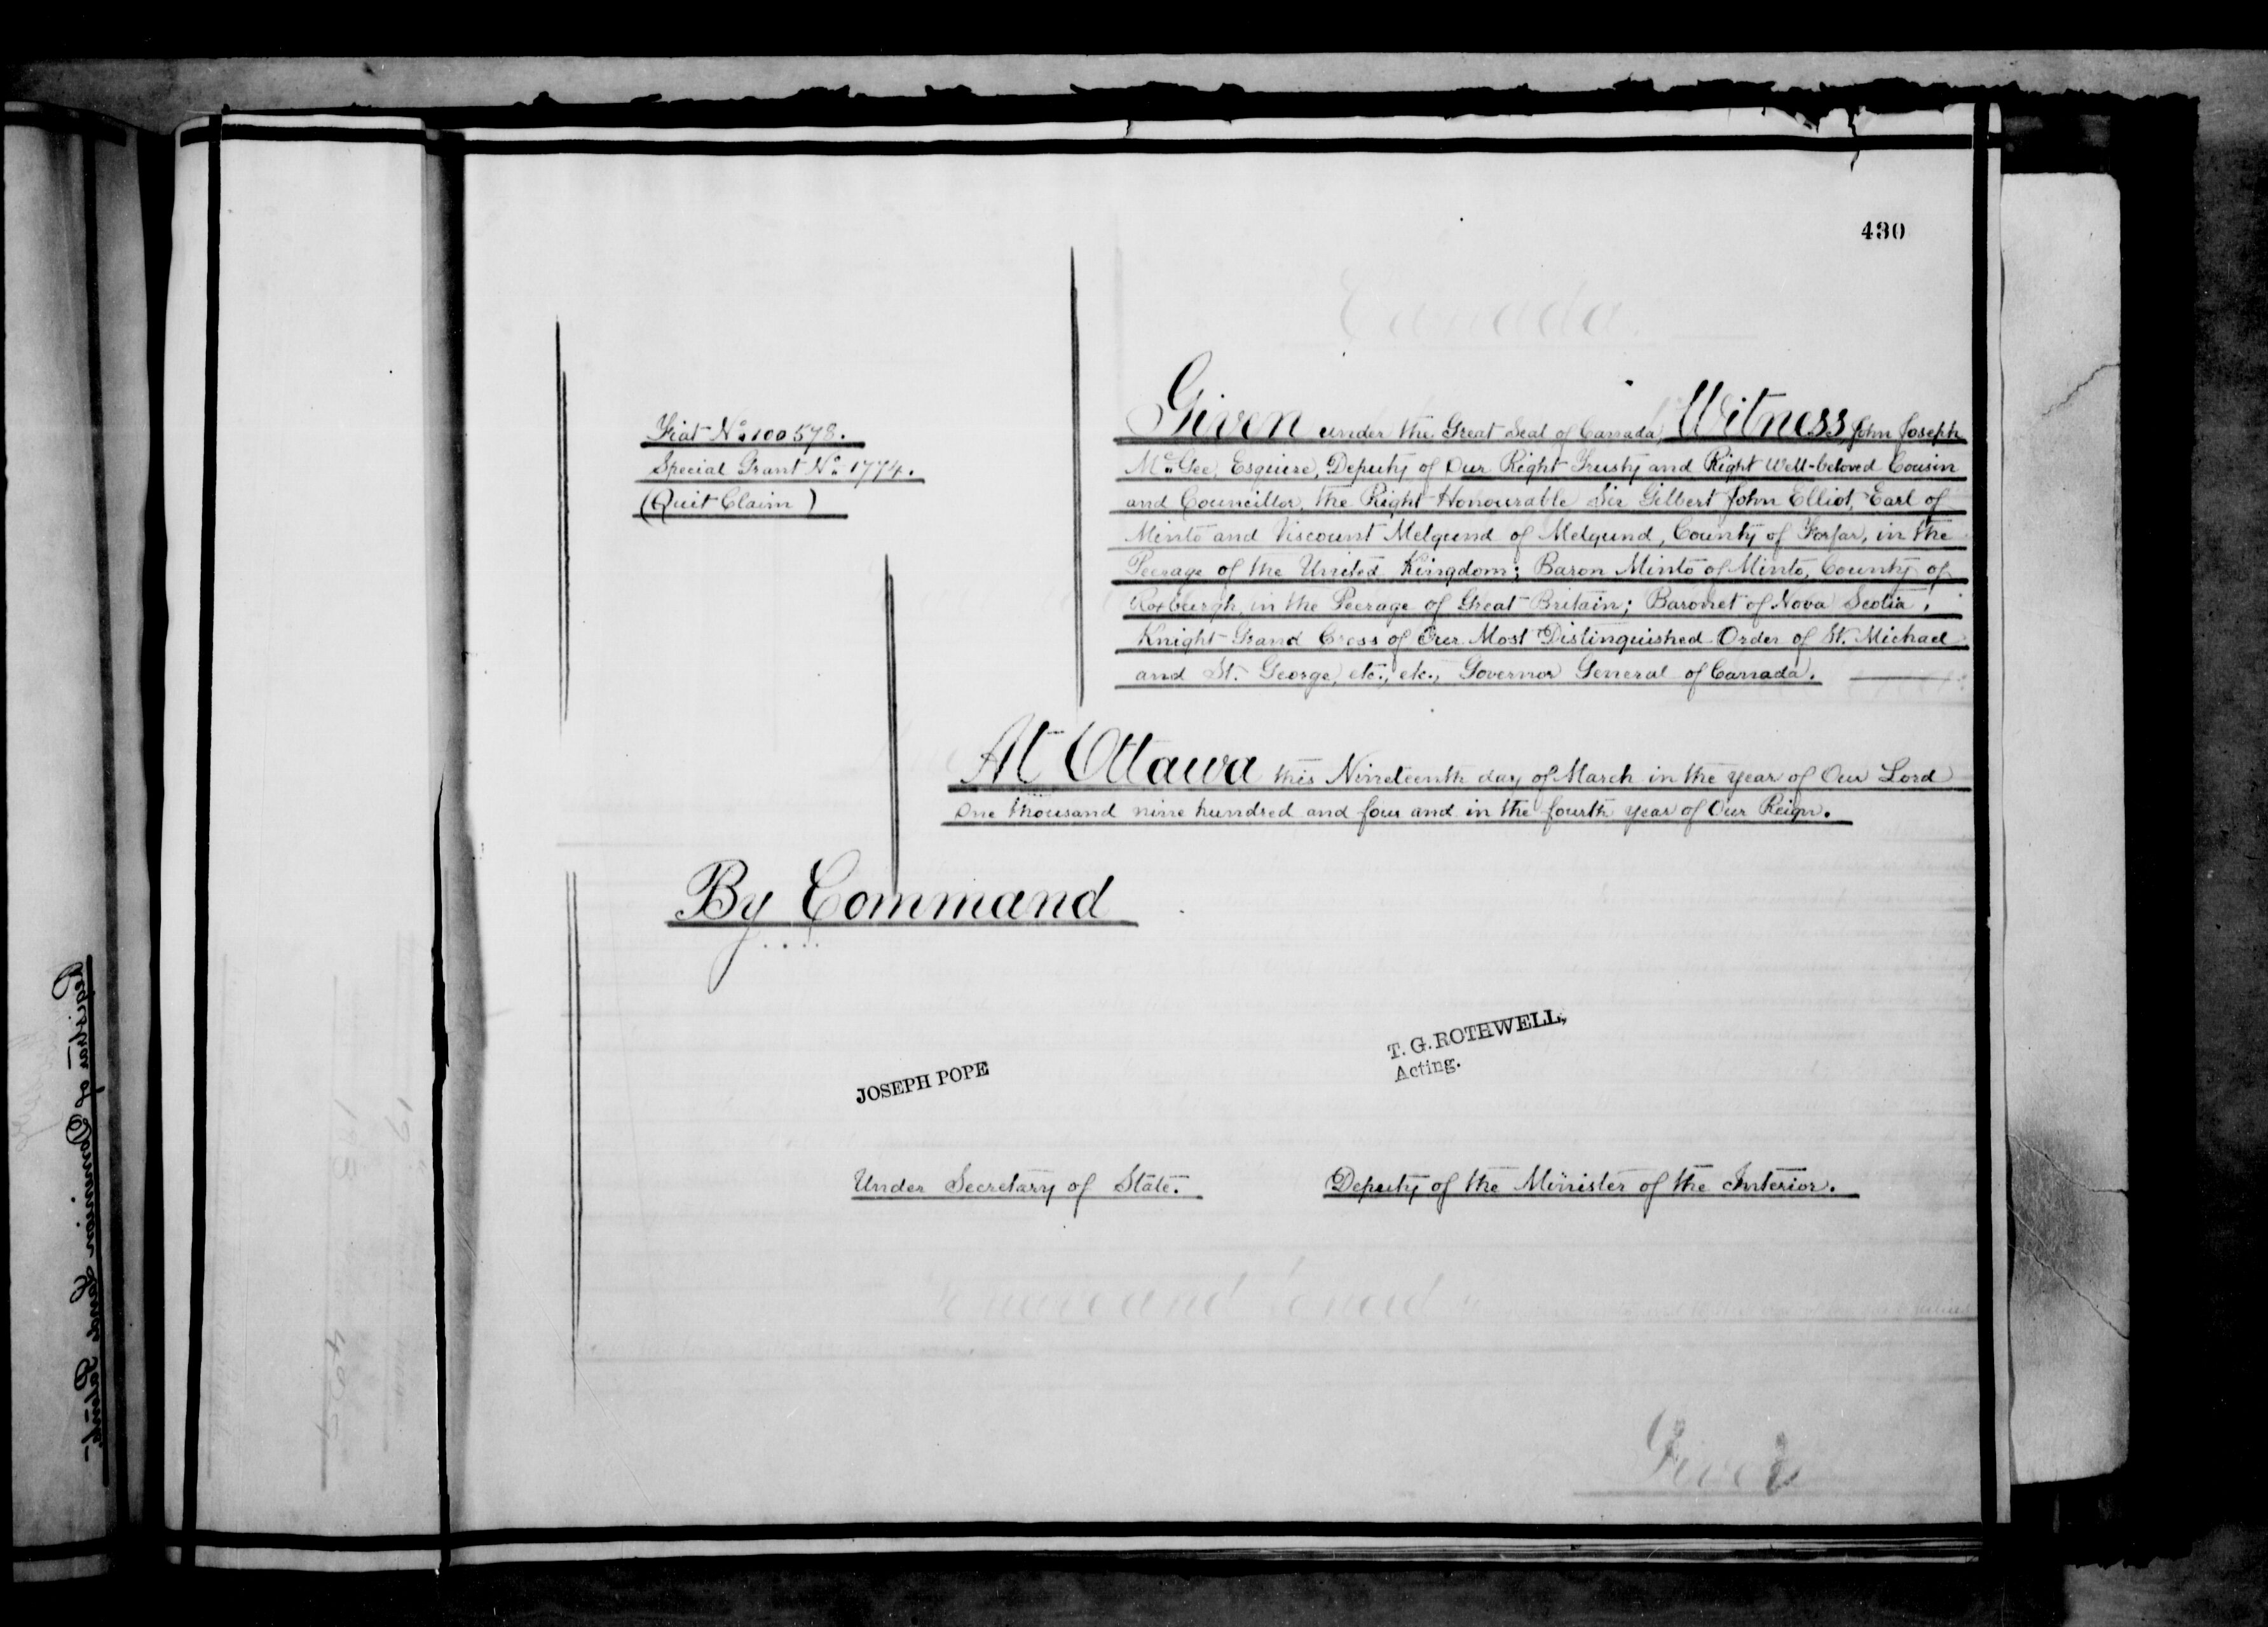 430
Canada.
Fiat No. 100578.
Special Grant No. 1774.
(Quit Claim)
Given under the Great Seal of Canada, Witness, John Joseph
McGee, Esquire, Deputy of Our Right Trusty and Right Well-beloved Cousin
and Councillor, the Right Honourable Sir Gilbert John Elliot, Earl of
Minto and Viscount Melgund of Melgund, County of Forfar, in the
Peerage of the United Kingdom; Baron Minto of Minto, County of
Roxburgh, in the Peerage of Great Britain; Baronet of Nova Scotia,
Knight Grand Cross of Our Most Distinguished Order of St. Michael
and St. George, etc., etc., Governor General of Canada.
At Ottawa this Nineteenth day of March in the year of Our Lord
One thousand nine hundred and four and in the fourth year of Our Reign.
By Command
JOSEPH POPE
T. G. ROTHWELL,
Acting.
Under Secretary of State.
Deputy of the Minister of the Interior.
Given
Registrar of Dominion Lands Patents